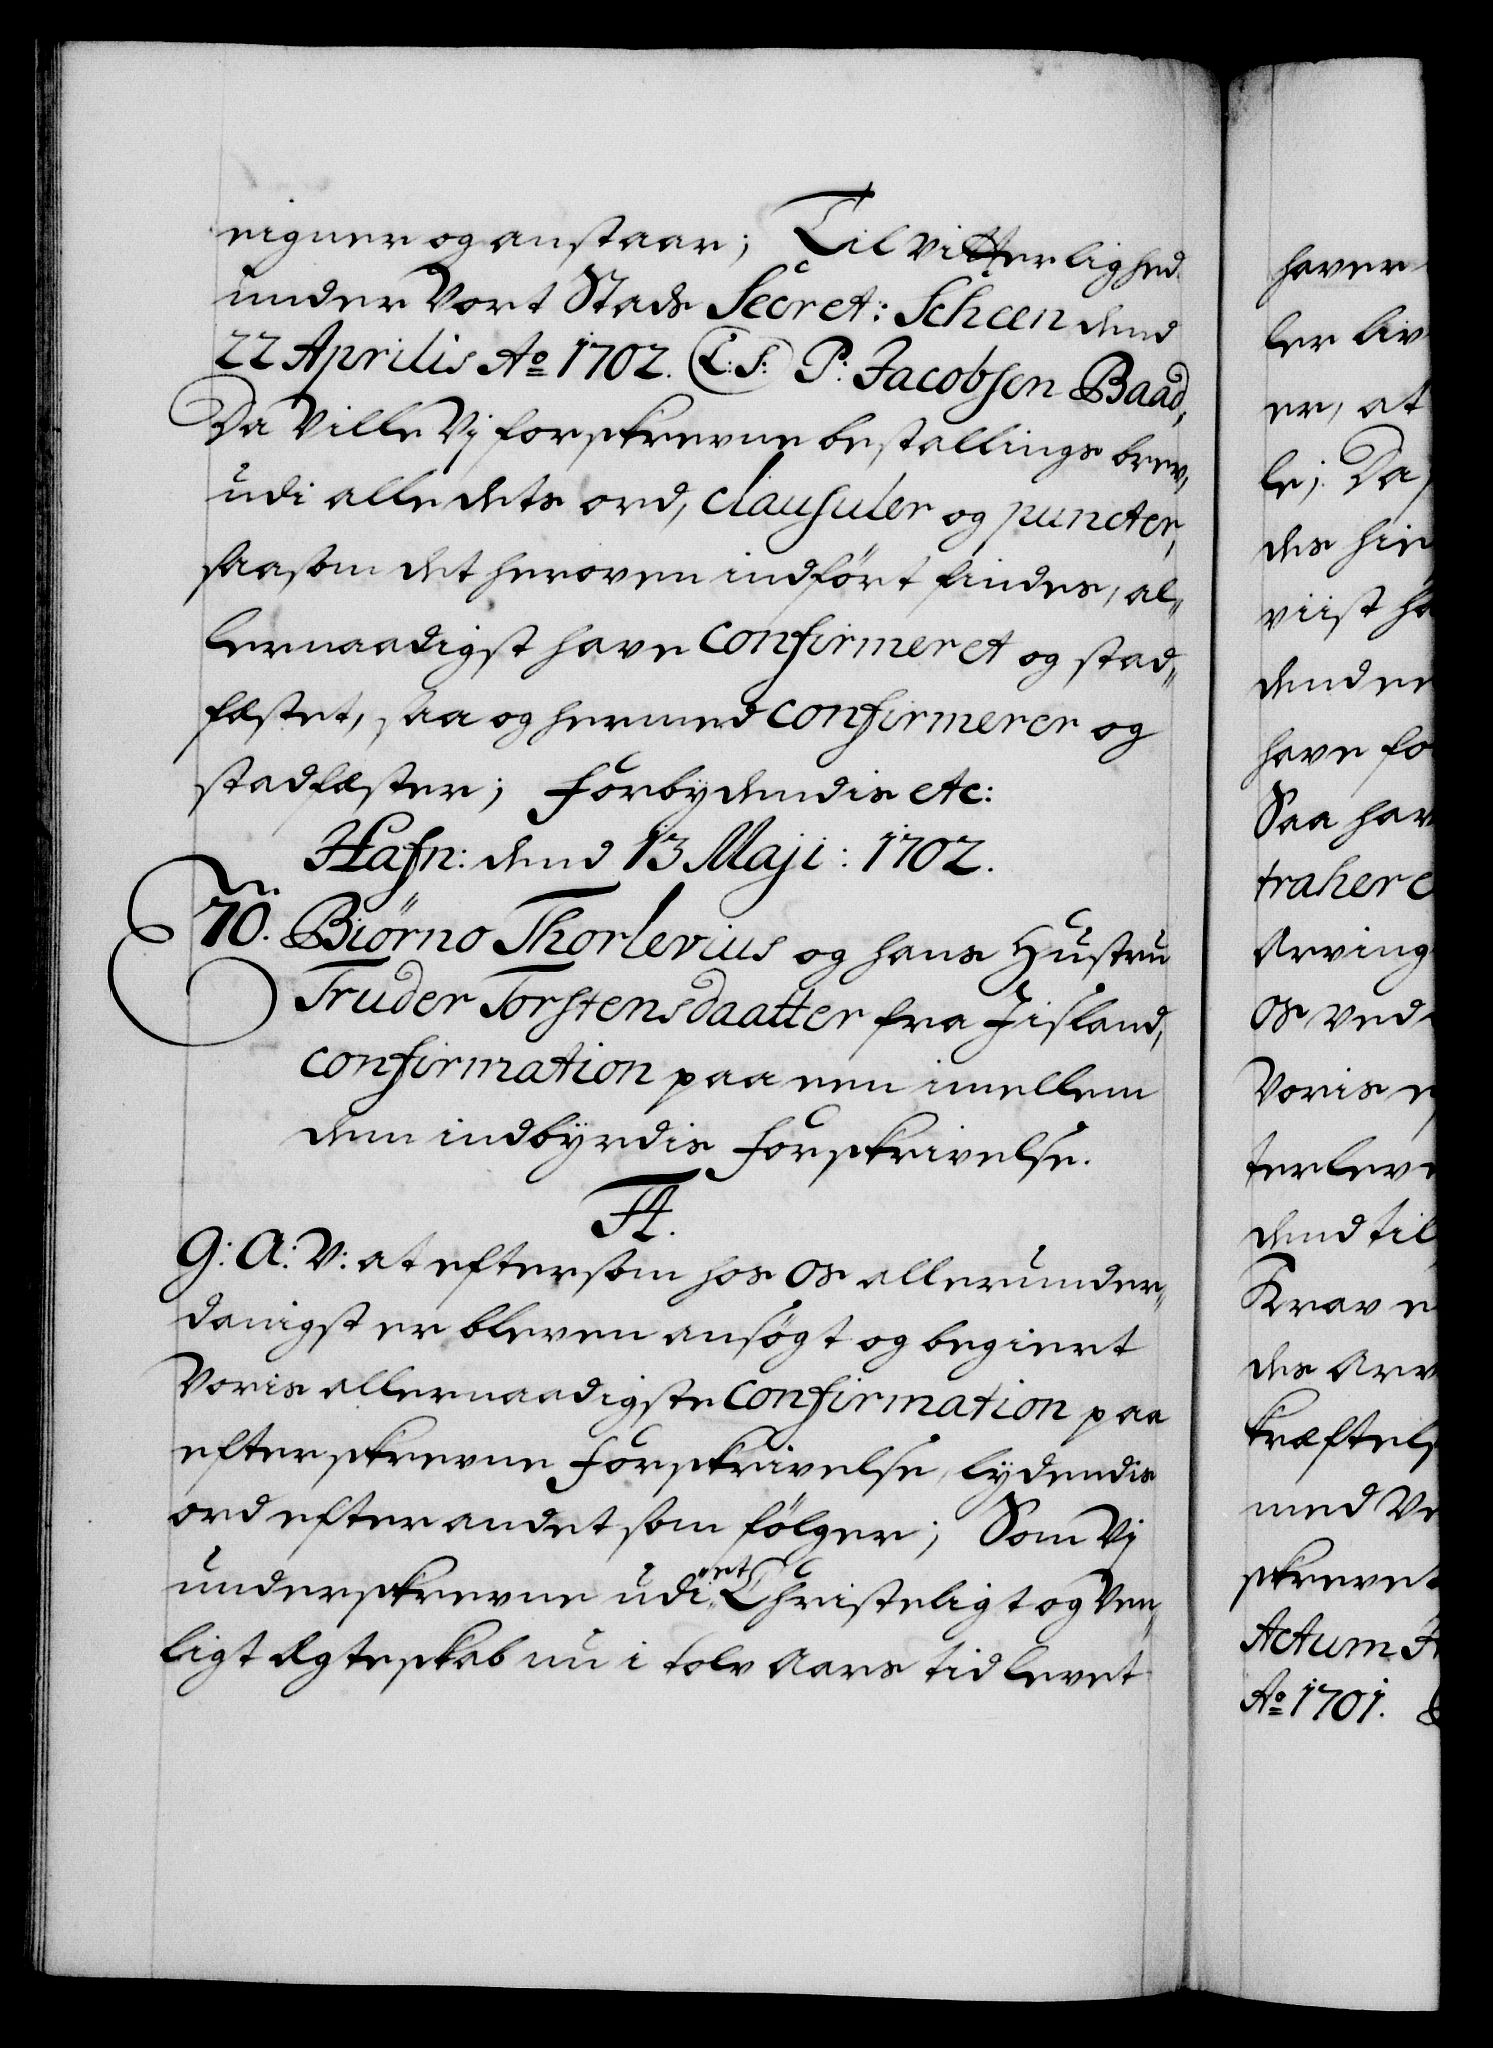 eigner og anstaar; Til vitterlighed
under Vort Stads Secret: Scheen dend
22 Aprilis Ao 1702. (L: S:) P: Jacobsen Baad,
Da Ville Vj forskrevne bestallings brev,
udi alle dets ord, clausuler og puncter,
saasom det heroven indført findes, al„
lernaadigst have confirmeret og stad„
fæstet, saa og hermed confirmerer og
stadfæster; Forbydendis etc:
Hafn: dend 13 Maji: 1702.
70. Biörno Thorlevius og hans Hustru
Truder Torstensdaatter fra Jisland,
confirmation paa een imellem
dem indbyrdis Forskrivelse.
F4.
G: A: V: at eftersom hos Os allerunder„
danigst er bleven ansøgt og begiert
Voris allernaadigste confirmation paa
efterskrevne Forskrivelse, lydendis
ord efter andet som følger; Som Vj
underskrevne udi et Christeligt og Ven„
ligt Ægteskab nu i tolv Aars tid levet
haver
ler liv
er, at
le; Da
des hie
viist ha
dend ee
have fo
Saa hav
trahere
Arving
Os ved
Voris e
terleve
dend til
Krav e
des Arv
kræftels
med Ve
skrevet
Actum H
Ao 1701.